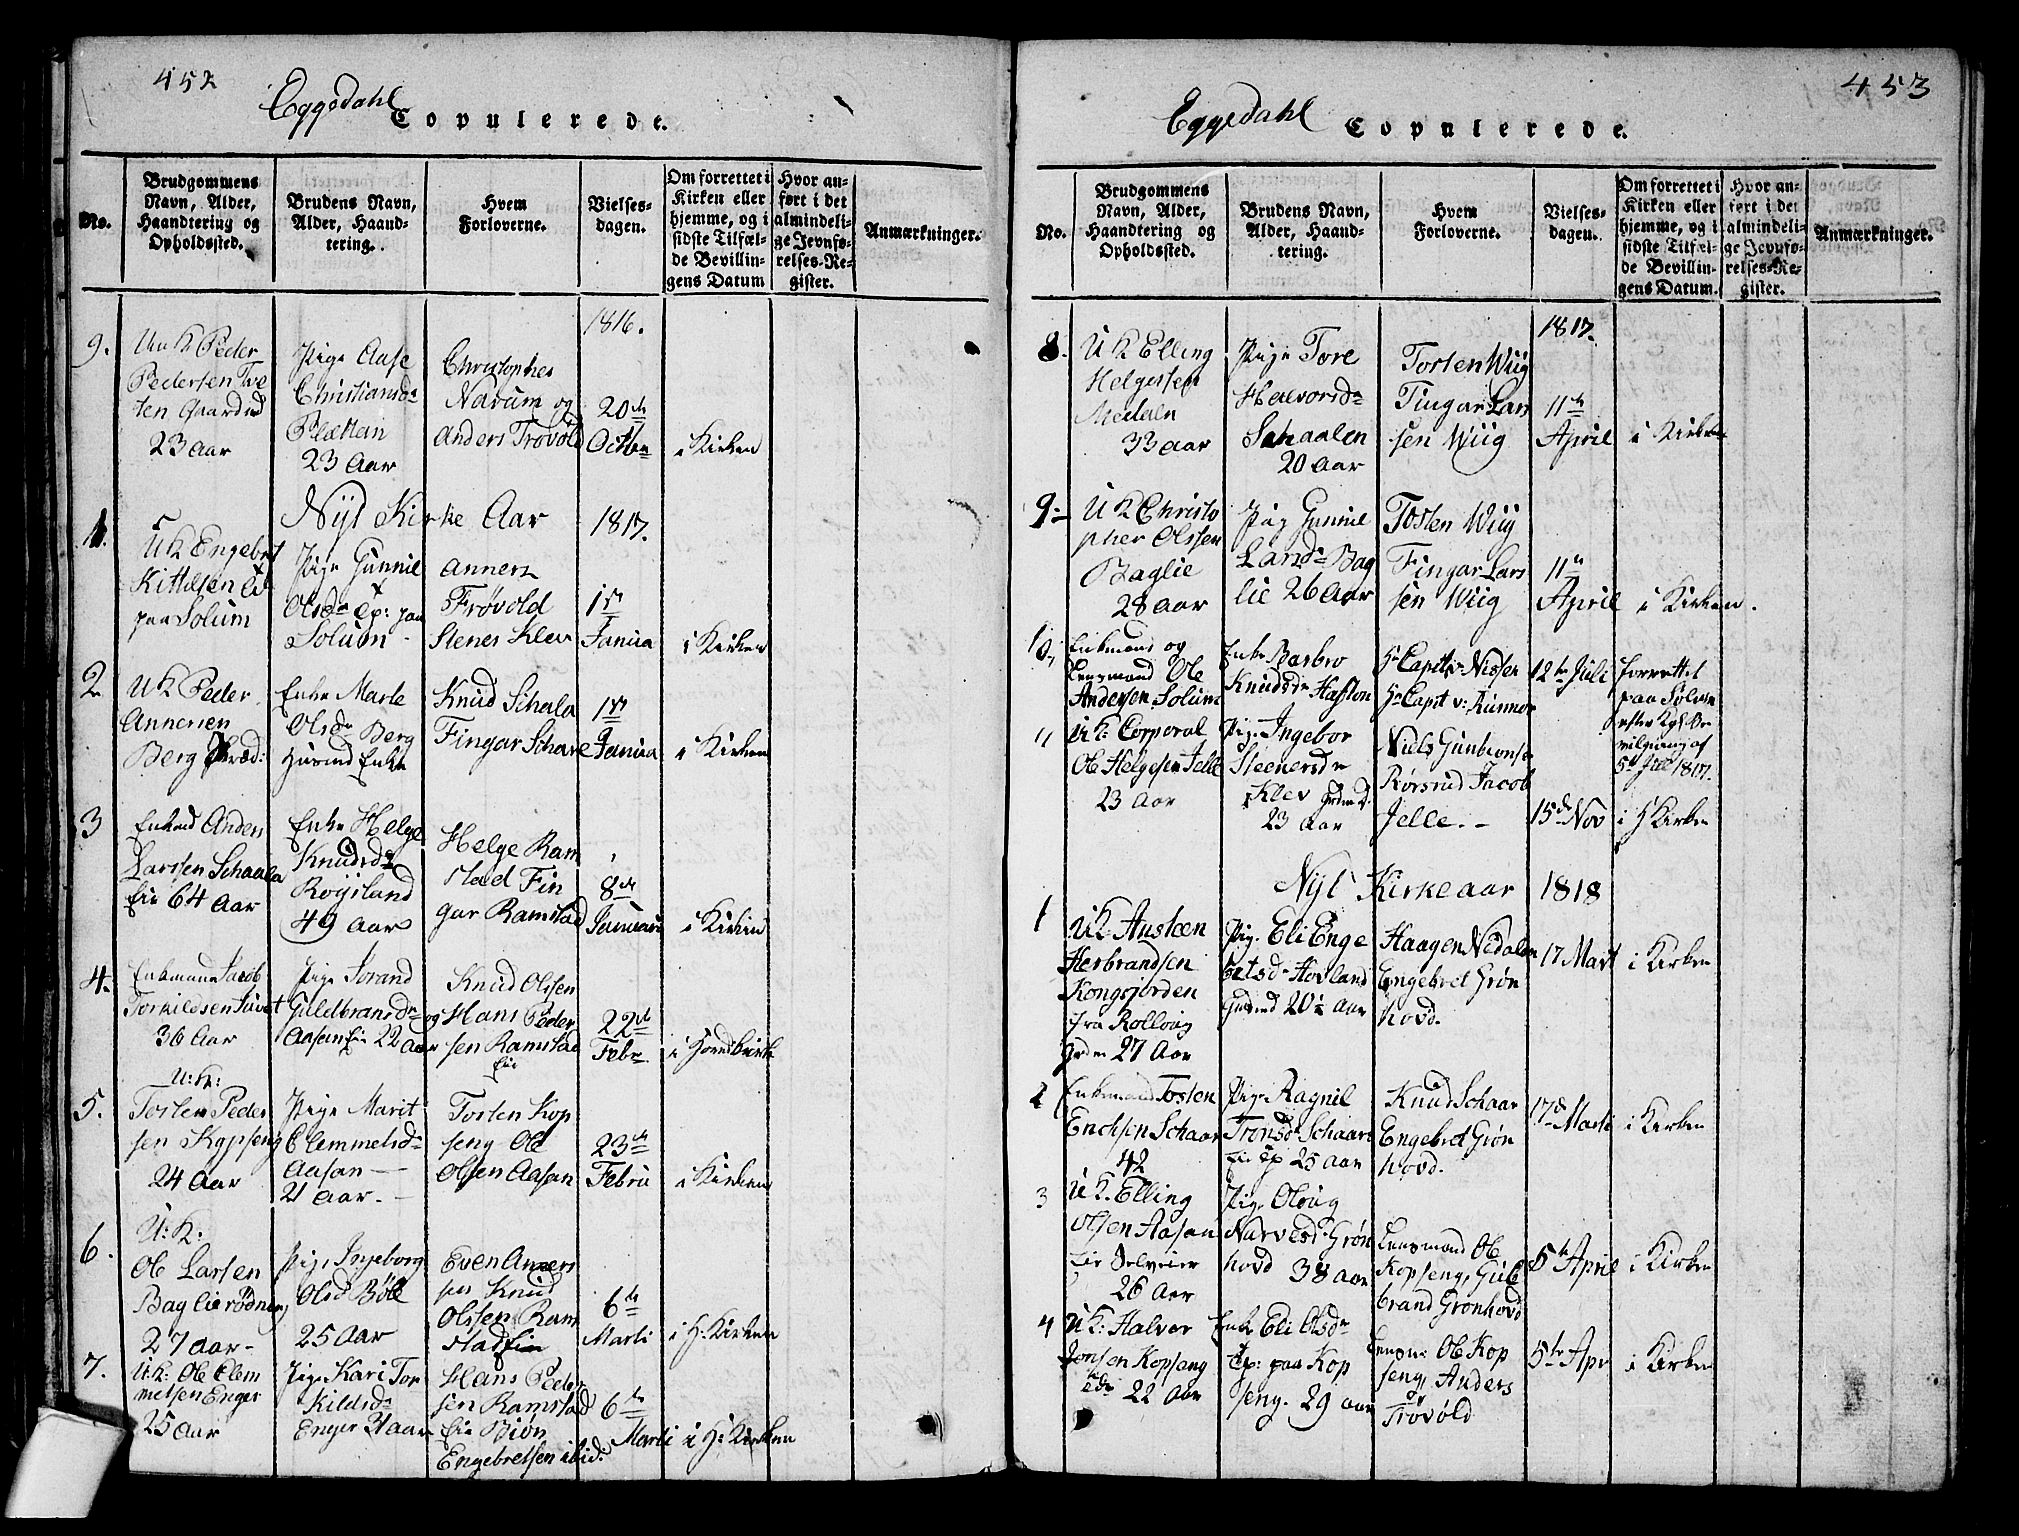 452
Eggedahl
Copulerede.
No.
Brudgommens
Navn, Alder,
Haandtering og
Opholdssted.
Brudens Navn,
Alder, Haand-
tering.
Hvem
Forloverne.
Vielses-
dagen.
Om forrettet i
Kirken eller
hjemme, og i
sidste Tilfæl-
de Bevillin-
gens Datum
Hvor an-
ført i det
almindeli-
ge Jevnfø-
relses-Re-
gister.
Anmærkninger.
1816.
9.
Peder
Pedersen
23 Aar
Pige Aase
Christiansd
23 Aar
Christopher
Narum og
Anders Trøvold
20de
Octbr
i Kirken
Nyt Kirke Aar 1817.
1.
UK Engebret
Kittelsen
paa Solum
Pige Gunnil
Olsdr Ep: paa
Solum
Anners
Frøvold
Stenes Klev
1ste
Janua
i Kirken
2
UK Peder
Annersen
Berg
Enke Marte
Olsdr Berg
Enke
Knud Schala
Fingar Schare
1ste
Janua
i Kirken
3
Enkmd Anders
Larssen Schaala
Eie 64 Aar
Enke Helge
Knudsdr
Røysland
49 Aar
Helge Ram
stad Fin
gar Ramstad
8de
Januari
i Kirken
4.
Enkmand Jacob
Torkildsen
36 Aar
Pige Jorand
Guldbransdr
Aasan Eie 22 Aar
Knud Olssen
og Hans Peder
sen Ramstad
Eie
22de
Febr
i
5.
U:K:
Tosten Peder
sen Kopseng
24 Aar
Pige Marit
Clemmetsdr
Aasan
21 Aar.
Tosten Kop
seng Ole
Olsen Aasan
23de
Febru
i Kirken
6.
U:K:
Ole Larsen
Baglierødning
27 Aar
Pige Ingeborg
Olsd Bøle
25 Aar
Even Anners
sen Knud
Olssen Ram
stad Eie
6te
Marti
i H: Kirken
7.
U:K: Ole Clem
metsen Enger
25 Aar
Pige Kari Tor
kildsdr
Enger
Hans Peder
sen Ramstad
Eie Biøn
Engebretsen ibid:
6te
Marti
i H: Kirken
453
Eggedahl
Copulerede.
No.
Brudgommens
Navn, Alder,
Haandtering og
Opholdssted.
Brudens Navn,
Alder, Haand-
tering.
Hvem
Forloverne.
Vielses-
dagen.
Om forrettet i
Kirken eller
hjemme, og i
sidste Tilfæl-
de Bevillin-
gens Datum.
Hvor an-
ført i det
almindeli-
ge Jevnfø-
relses-Re-
gister.
Anmærkninger.
1817.
8.
UK Elling
Helgessen
Medalen
33 Aar
Pige Tore
Halvorsdr
Schaalen
20 Aar
Tosten Wiig
Fingar Lars
sen Wiig
11te
April
i Kirken
9.
UK Christo
pher Olssen
Baglie
28 Aar
Pige Gunnil
Larsdr Bag
lie 26 Aar
Tosten Wiig
Fingar Lars
sen Wiig
11te
April
i Kirken.
10.
Enkmand og
Lensmand Ole
Andersen Solum
Enke Barbro
Knudsdr
Hr Capit v: Nissen
Hr Capt v:
12te Juli
forrettet
paa Solum
efter Kgl Be
vilgning af
5te Juli 1817.
11
UK: Corporal
Ole Helgesen Jelle
23 Aar
Pige Ingebor
Steenersdr
Klev
23 Aar
Niels Gunbiørnse
Rørsrud Jacob
Jelle.
15de Nov
i H Kirken
Nyt Kirkeaar 1818
1
UK: Austeen
Herbrandsen
Kongsjorden
fra Rolloug
27 Aar
Pige Eli Enge
bretsdr Hovland
20½ Aar
Haagen Nedalen
Engebret Grøn
hovd.
17 Mart
i Kirken
2
Enkemand Tosten
Erichsen Schaar
42
Pige Ragnil
Tronsdr Schaar
Eie Ep 25 Aar
Knud Schaar
Engebret Grøn
hovd.
17de Marti
i Kirken
3
UK. Elling
Olsen Aasan
Eie
26 Aar
Pige Oloug
Narvesdr Grøn
hovd 38 Aar
Lensmand Ole
Kopseng, Gul
brand Grønhovd
5te April
i Kirken
4
UK: Halvor
Jonsen Kopseng
22 Aar
Enke Eli Olsdr
Ep: paa Kop
seng. 29 Aar
Lensm: Ole Kop
seng, Anders
Trøvold
5te Apr
i Kirken